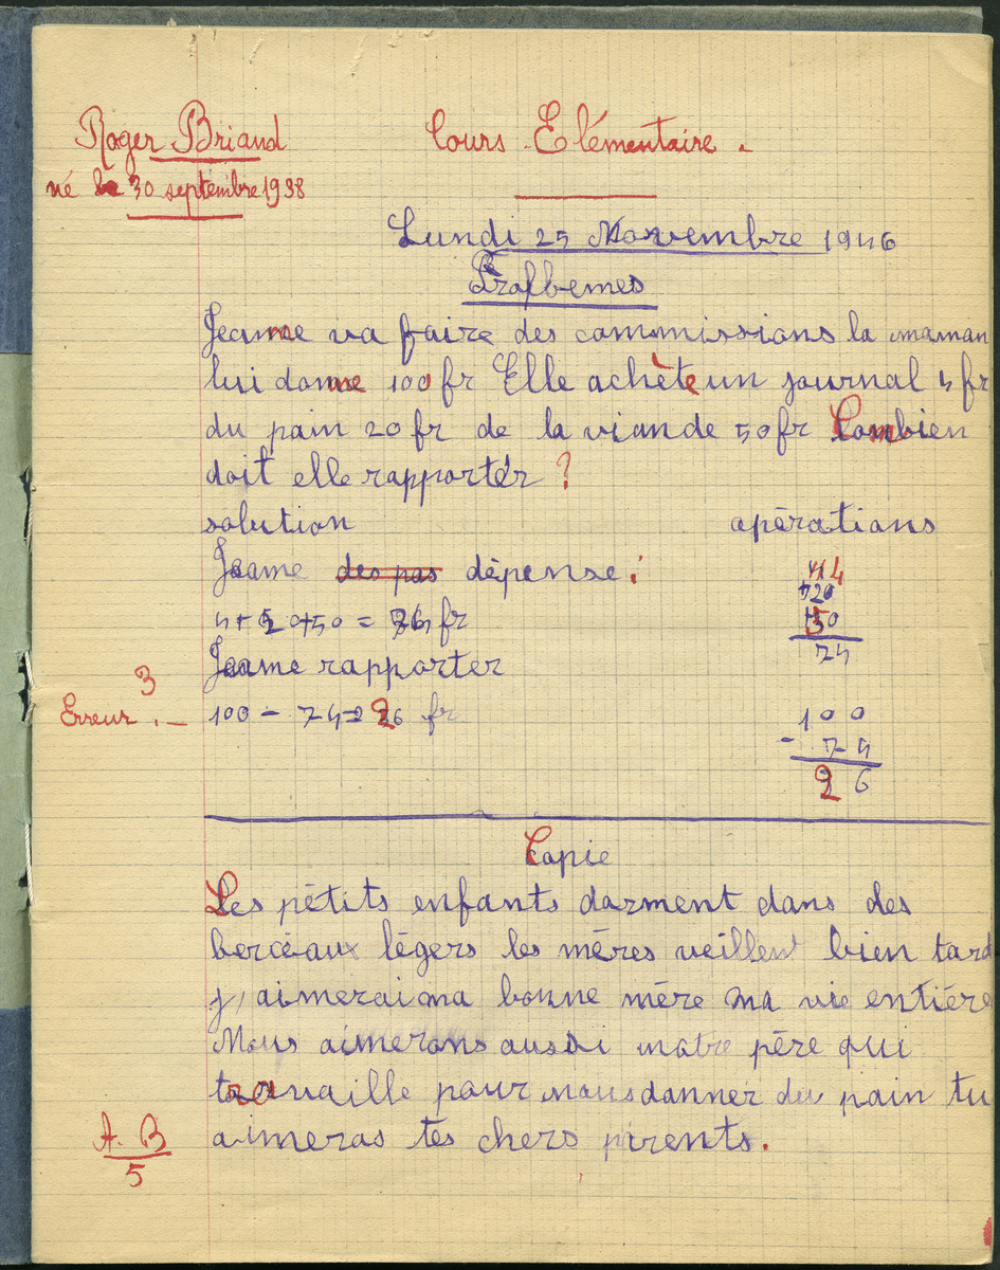 Roger Briand
Cours Elémentaire.
né le 30 septembre 1938
Lundi 25 Novembre 1946
Jeanne va faire des commissions la maman
lui donne 100 fr Elle achète un journal 4 fr
du pain 20 fr de la viande 50 fr Combien
doit elle rapporter ?
solution opérations
Jeanne des pas dépense :
4
+20
+50
74
4 + 20 + 50 = 74 fr
Jeanne rapporter
3
Erreur . —
100 - 74 = 26 fr
100
- 74
26
Copie
Les pétits enfants dorment dans des
berceaux légers les mères veillent bien tard
j'aimerai ma bonne mère ma vie entière
Nous aimerons aussi notre père qui
travaille pour nous donner du pain tu
aimeras tes chers pirents.
A. B
5